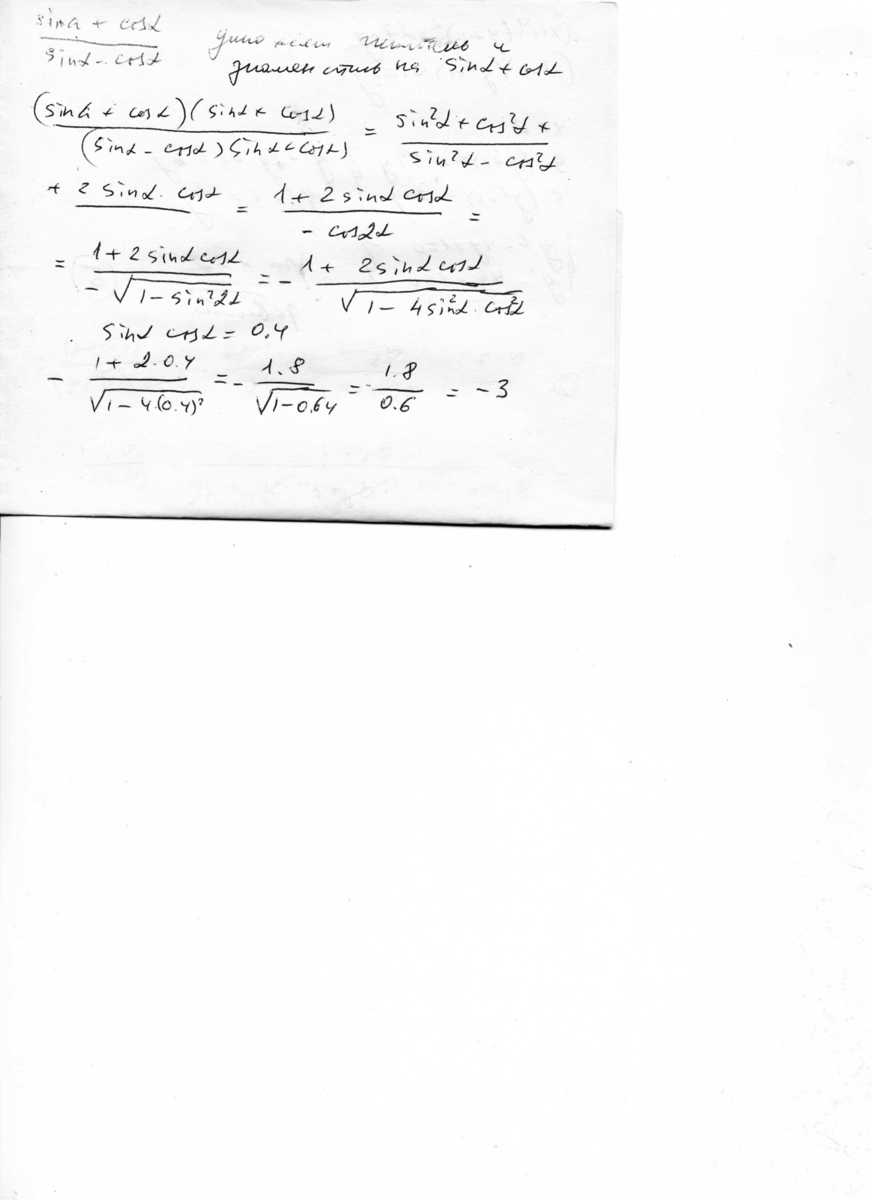 sinα + cosα / sinα - cosα умножим числитель и
знаменатель на sinα + cosα
(sinα + cosα)(sinα + cosα) / (sinα - cosα)(sinα + cosα) = sin²α + cos²α + / sin²α - cos²α
+ 2 sinα · cosα = 1 + 2 sinα cosα / - cos2α =
= 1 + 2 sinα cosα / - √1 - sin²2α = - 1 + 2 sinα cosα / √1 - 4 sin²α · cos²α
sinα cosα = 0.4
- 1 + 2·0.4 / √1 - 4·(0.4)² = - 1.8 / √1 - 0.64 = - 1.8 / 0.6 = - 3